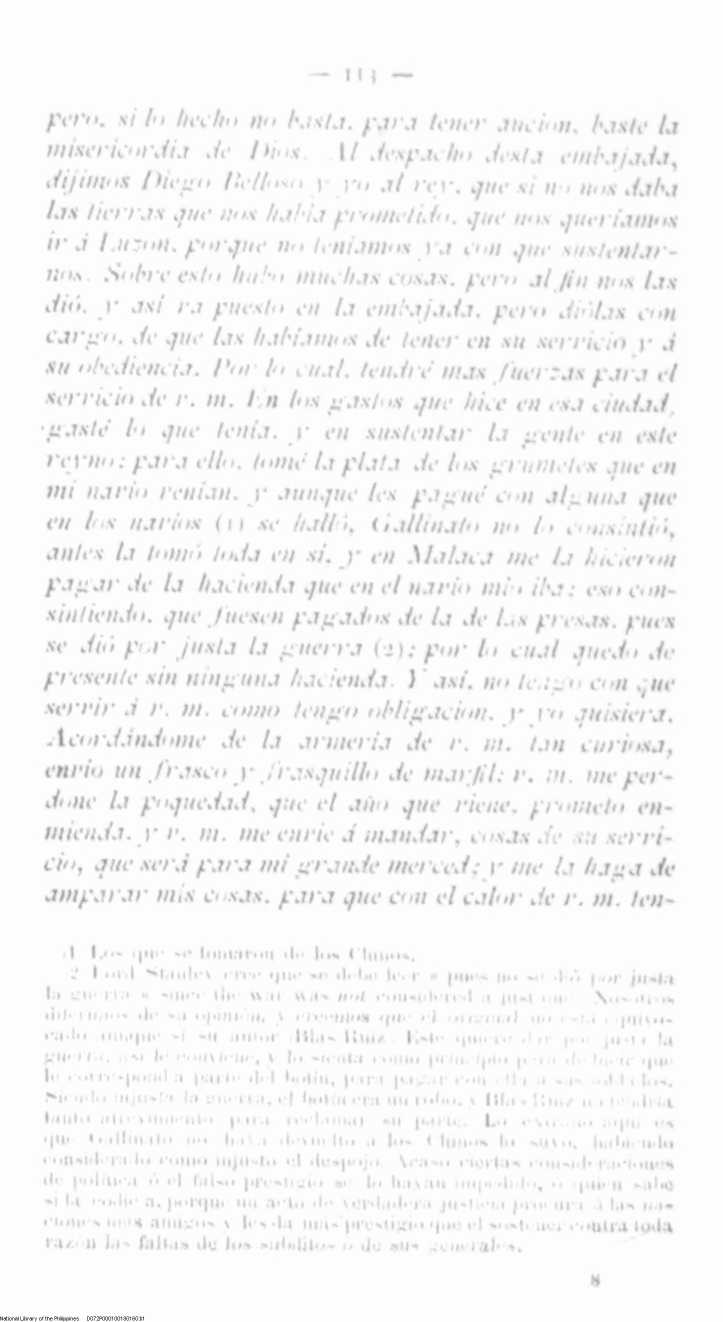 — 113 —
pero, si lo hecho no basta, para tener ancion, baste la
misericordia de Dios. Al despacho desta embajada,
dijimos Diego Belloso y yo al rey, que si no nos daba
las tierras que nos había prometido, que nos queríamos
ir á Luzon, porque no teníamos ya con que sustentar-
nos. Sobre esto hubo muchas cosas, pero al fin nos las
dió, y así va puesto en la embajada, pero diólas con
cargo, de que las habíamos de tener en su servicio y á
su obediencia. Por lo cual, tendré mas fuerzas para el
servicio de v. m. En los gastos que hice en esa ciudad,
gasté lo que tenía, y en sustentar la gente en este
reyno; para ello, tomé la plata de los grumetes que en
mi navío venían, y aunque les pagué con alguna que
en los navíos (1) se halló, Gallinato no lo consintió,
antes la tomó toda en sí, y en Malaca me la hicieron
pagar de la hacienda que en el navío mío iba; eso con-
sintiendo, que fuesen pagados de la de las presas, pues
se dió por justa la guerra (2); por lo cual quedo de
presente sin ninguna hacienda. Y así, no tengo con que
servir á v. m. como tengo obligacion, y yo quisiera.
Acordándome de la armería de v. m. tan curiosa,
envio un frasco y frasquillo de marfil; v. m. me per-
done la poquedad, que el año que viene, prometo en-
mienda. y v. m. me envíe á mandar, cosas de su servi-
cio, que será para mí grande merced; y me la haga de
amparar mis cosas, para que con el calor de v. m. ten-
1 Los que se tomaron de los Chinos.
2 Lord Stanley cree que se debe leer « pues no se dió por justa
la guerra » since the war was not considered a just one. Nosotros
diferimos de su opinión, y creemos que el original no está equivo-
cado aunque sí su autor (Blas Ruiz). Este quiere dar por justa la
guerra, así le conviene, y lo sienta como principio para deducir que
le corresponda parte del botín, para pagar con ella a sus soldados.
Siendo injusta la guerra, el botín era un robo, y Blas Ruiz no tendría
tanto atrevimiento para reclamar su parte. Lo extraño aquí es
que Gallinato no haya devuelto a los Chinos lo suyo, habiendo
considerado como injusto el despojo. Acaso ciertas consideraciones
de política ó el falso prestigio se lo hayan impedido, o quien sabe
si la codicia, porque un acto de verdadera justicia procura á las na-
ciones más amigos y les da más prestigio que el sostener contra toda
razón las faltas de los súbditos o de sus generales.
8
National Library of the Philippines